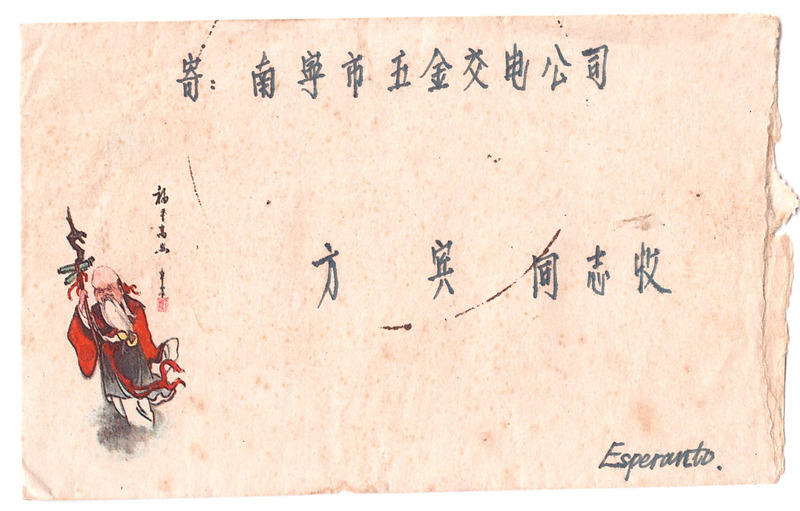 寄：南寧市五金交电公司
方宾同志收
Esperanto.